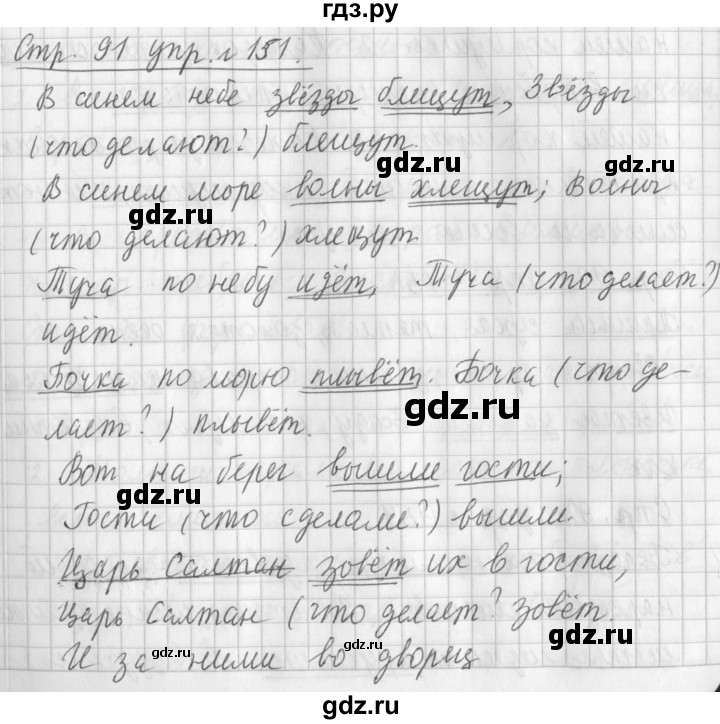 гдз.ру
Стр. 91 упр. 151.
В синем небе звёзды блищут, Звёзды
(что делают?) блещут.
gdz.ru
В синем море волны хлещут; Волны
gdz.ru
(что делают?) хлещут.
gdz.ru
Туча по небу идёт, Туча (что делает?)
идёт.
gdz.ru
Бочка по морю плывёт. Бочка (что де-
gdz.ru
лает?) плывёт.
Вот на берег вышли гости;
gdz.ru
Гости (что сделали?) вышли.
Царь Салтан зовёт их в гости,
Царь Салтан (что делает? зовёт.
gdz.ru
gdz.ru
И за ними во дворец
gdz.ru
gdz.ru